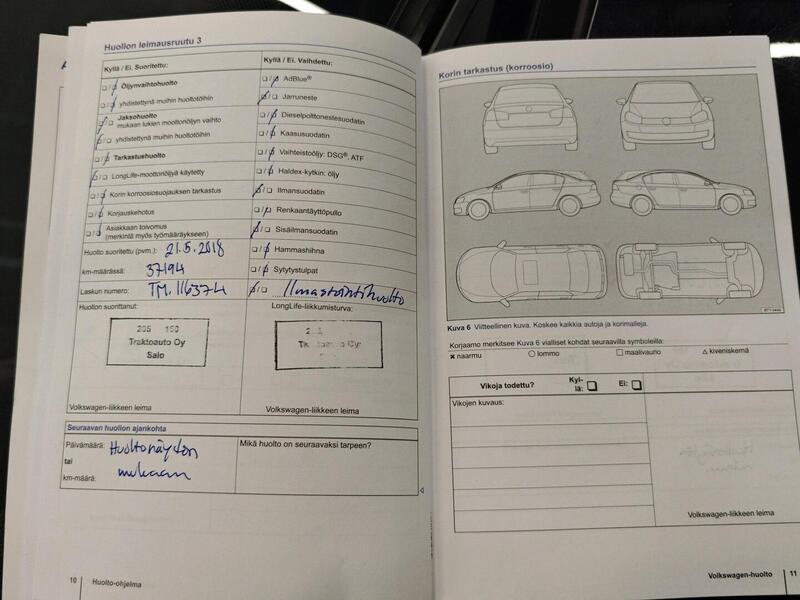 Huollon leimausruutu 3
Kyllä / Ei. Suoritettu:
Öljynvaihtohuolto
yhdistettynä muihin huoltotöihin
Jaksohuolto
mukaan lukien moottoriöljyn vaihto
yhdistettynä muihin huoltotöihin
Tarkastushuolto
LongLife-moottoriöljyä käytetty
Korin korroosiosuojauksen tarkastus
Korjauskehotus
Asiakkaan toivomus
(merkintä myös työmääräykseen)
Huolto suoritettu (pvm.): 21.5.2018
km-määrässä: 37194
Laskun numero: TM.116374
Huollon suorittanut:
205 150
Traktoauto Oy
Salo
Volkswagen-liikkeen leima
Kyllä / Ei. Vaihdettu:
AdBlue®
Jarruneste
Dieselpolttonestesuodatin
Kaasusuodatin
Vaihteistoöljy: DSG®, ATF
Haldex-kytkin: öljy
Ilmansuodatin
Renkaantäyttöpullo
Sisäilmansuodatin
Hammashihna
Sytytystulpat
Ilmastointihuolto
LongLife-liikkumisturva:
Volkswagen-liikkeen leima
Seuraavan huollon ajankohta
Päivämäärä: Huoltonäytön
tai
km-määrä: mukaan
Mikä huolto on seuraavaksi tarpeen?
10 Huolto-ohjelma
Korin tarkastus (korroosio)
Kuva 6 Viitteellinen kuva. Koskee kaikkia autoja ja korimalleja.
Korjaamo merkitsee Kuva 6 vialliset kohdat seuraavilla symboleilla:
× naarmu ○ lommo □ maalivaurio △ kiveniskemä
Vikoja todettu? Kyl-
lä: Ei:
Vikojen kuvaus:
Volkswagen-liikkeen leima
Volkswagen-huolto 11